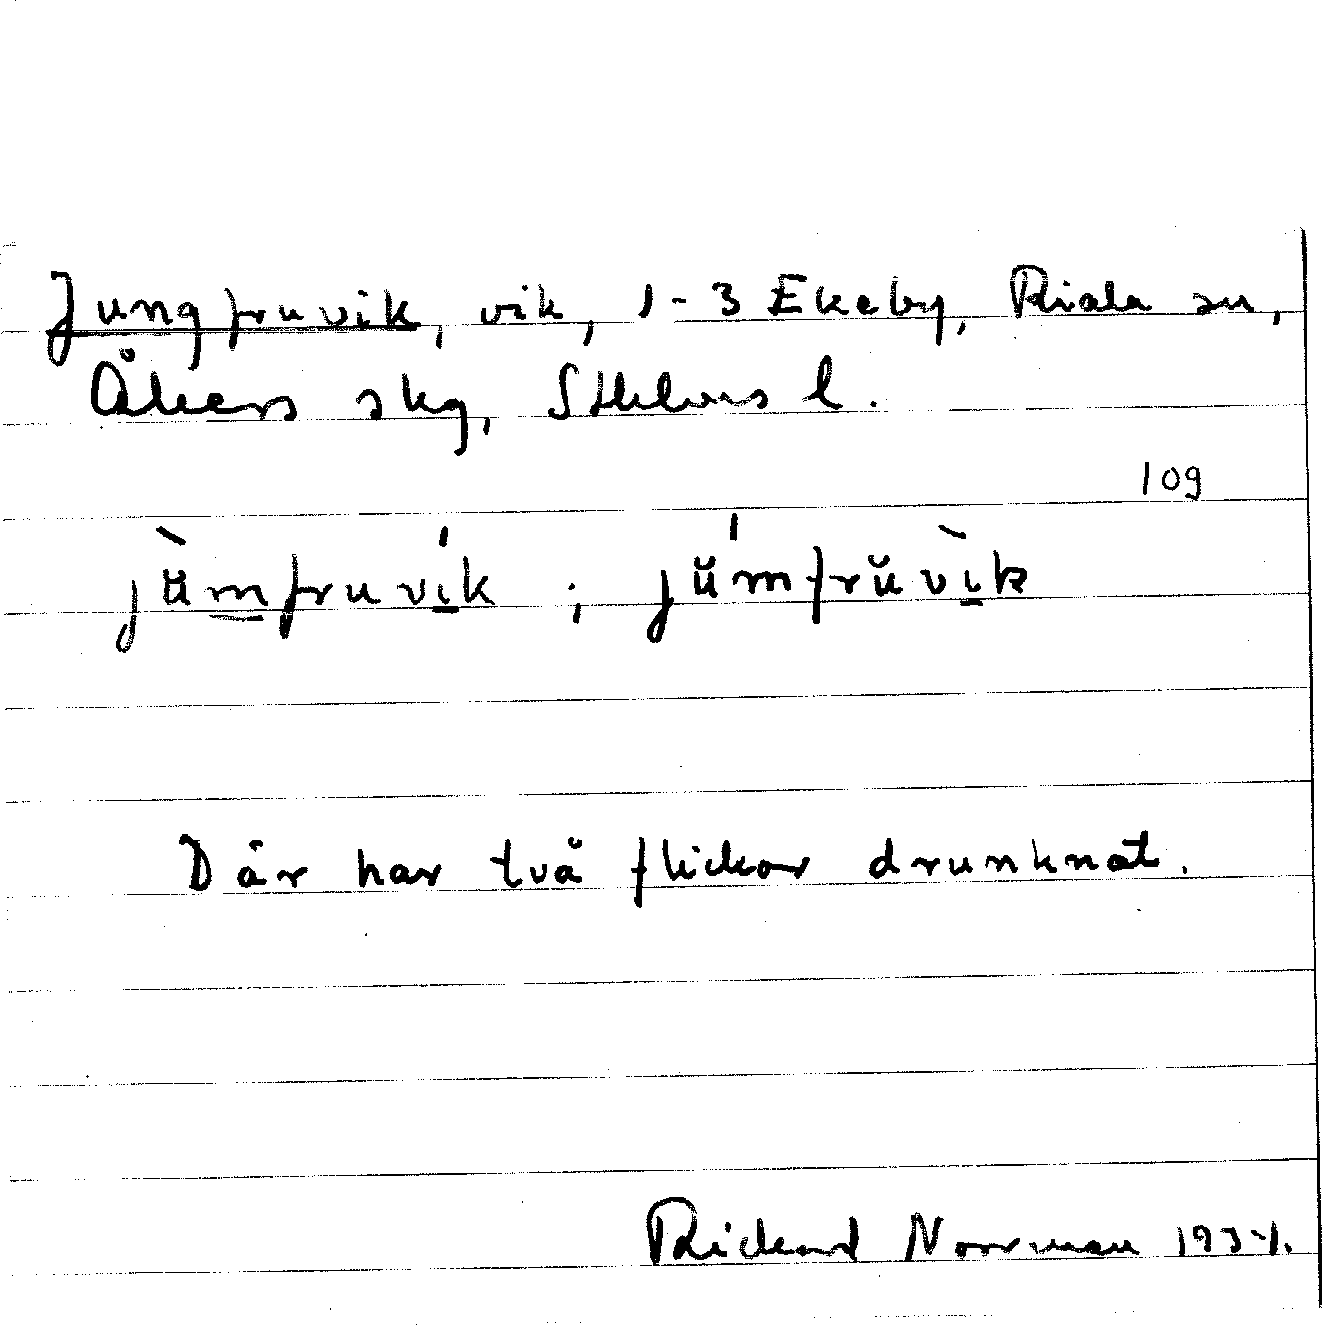 Jungfruvik, vik, 1-3 Ekeby, Riala sn,
Åkers skg, Sthlms l.
109
jŭ̀mfruvík ; jŭ́mfrŭvìk
Där har två flickor drunknat.
Rickard Norrman